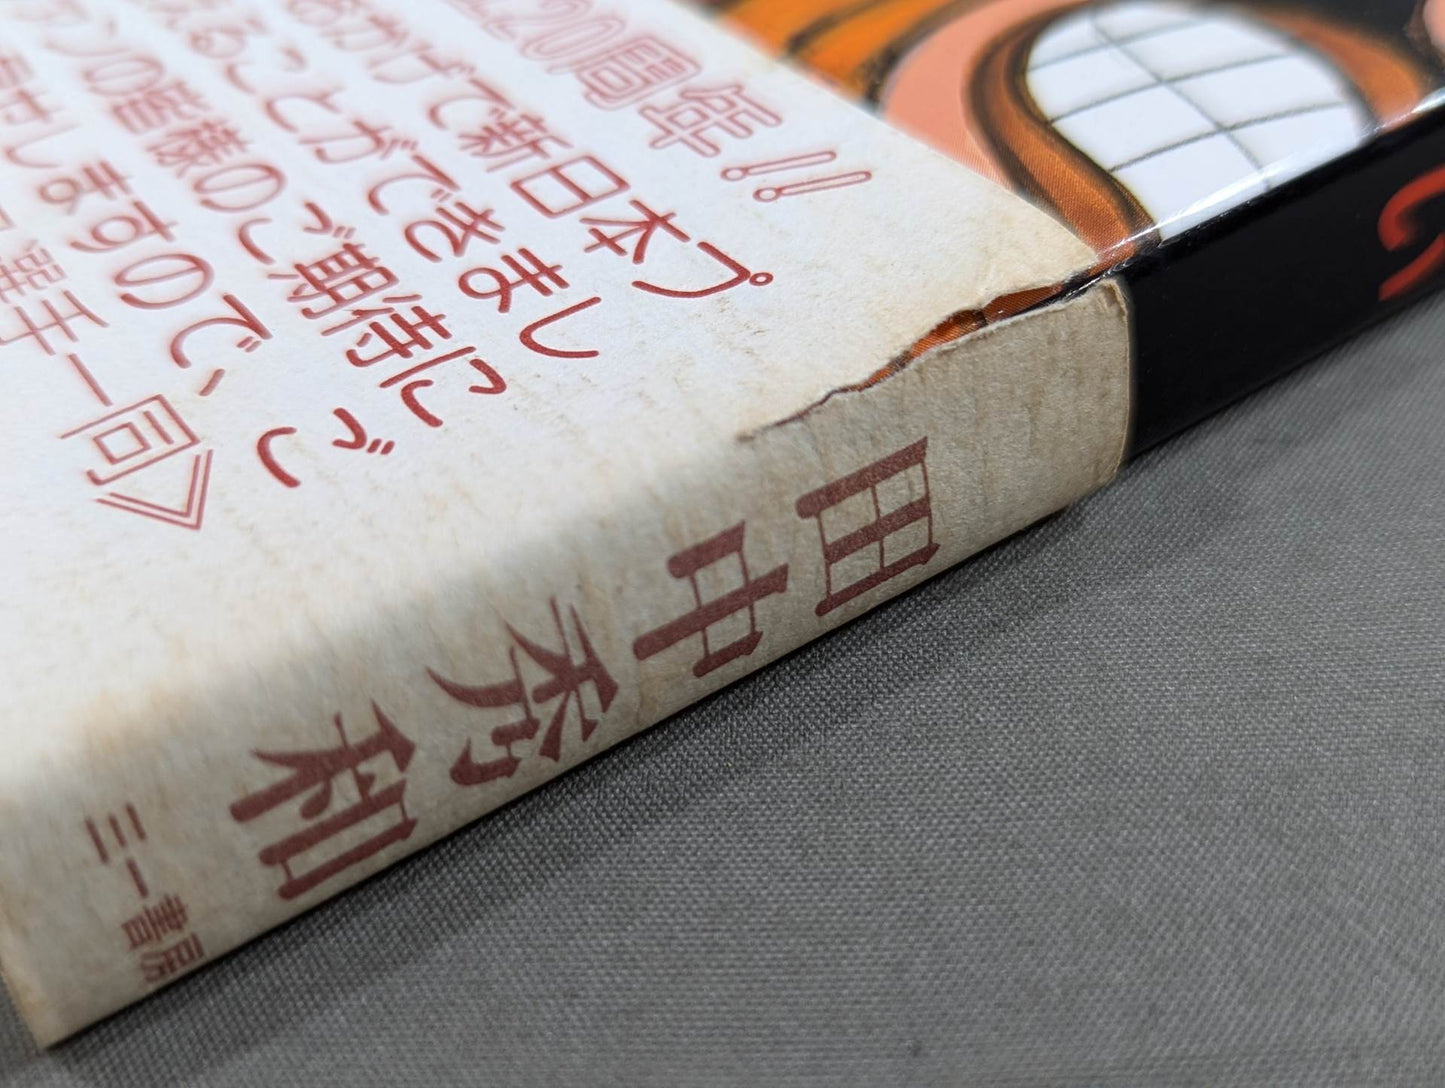 20周年!!
おかげで新日本プ
えることができまし
ァンの皆様のご期待に
付しますので、ご
選手一同》
田中秀和
三一書房
し